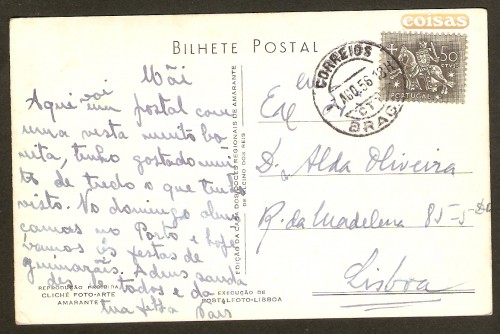 coisas
BILHETE POSTAL
CORREIOS
AGO. 56
BRAGA
$50
PORTUGAL
Mãi
Aqui vai um postal com
uma vista muito bo
nita, tenho gostado mui
to de tudo o que tenho
visto. No domingo almo
çamos no Porto e hoje
vamos ás festas de
guimarães. Adeus sauda
des a todos e da
tua filha
Ex
D. Alda Oliveira
R. da Madalena 85-5-
Lisboa
EDIÇÃO DA CASA DOS DOCES REGIONAIS DE AMARANTE
REPRODUÇÃO PROIBIDA
CLICHÉ FOTO-ARTE
AMARANTE
EXECUÇÃO DE
POSTALFOTO-LISBOA